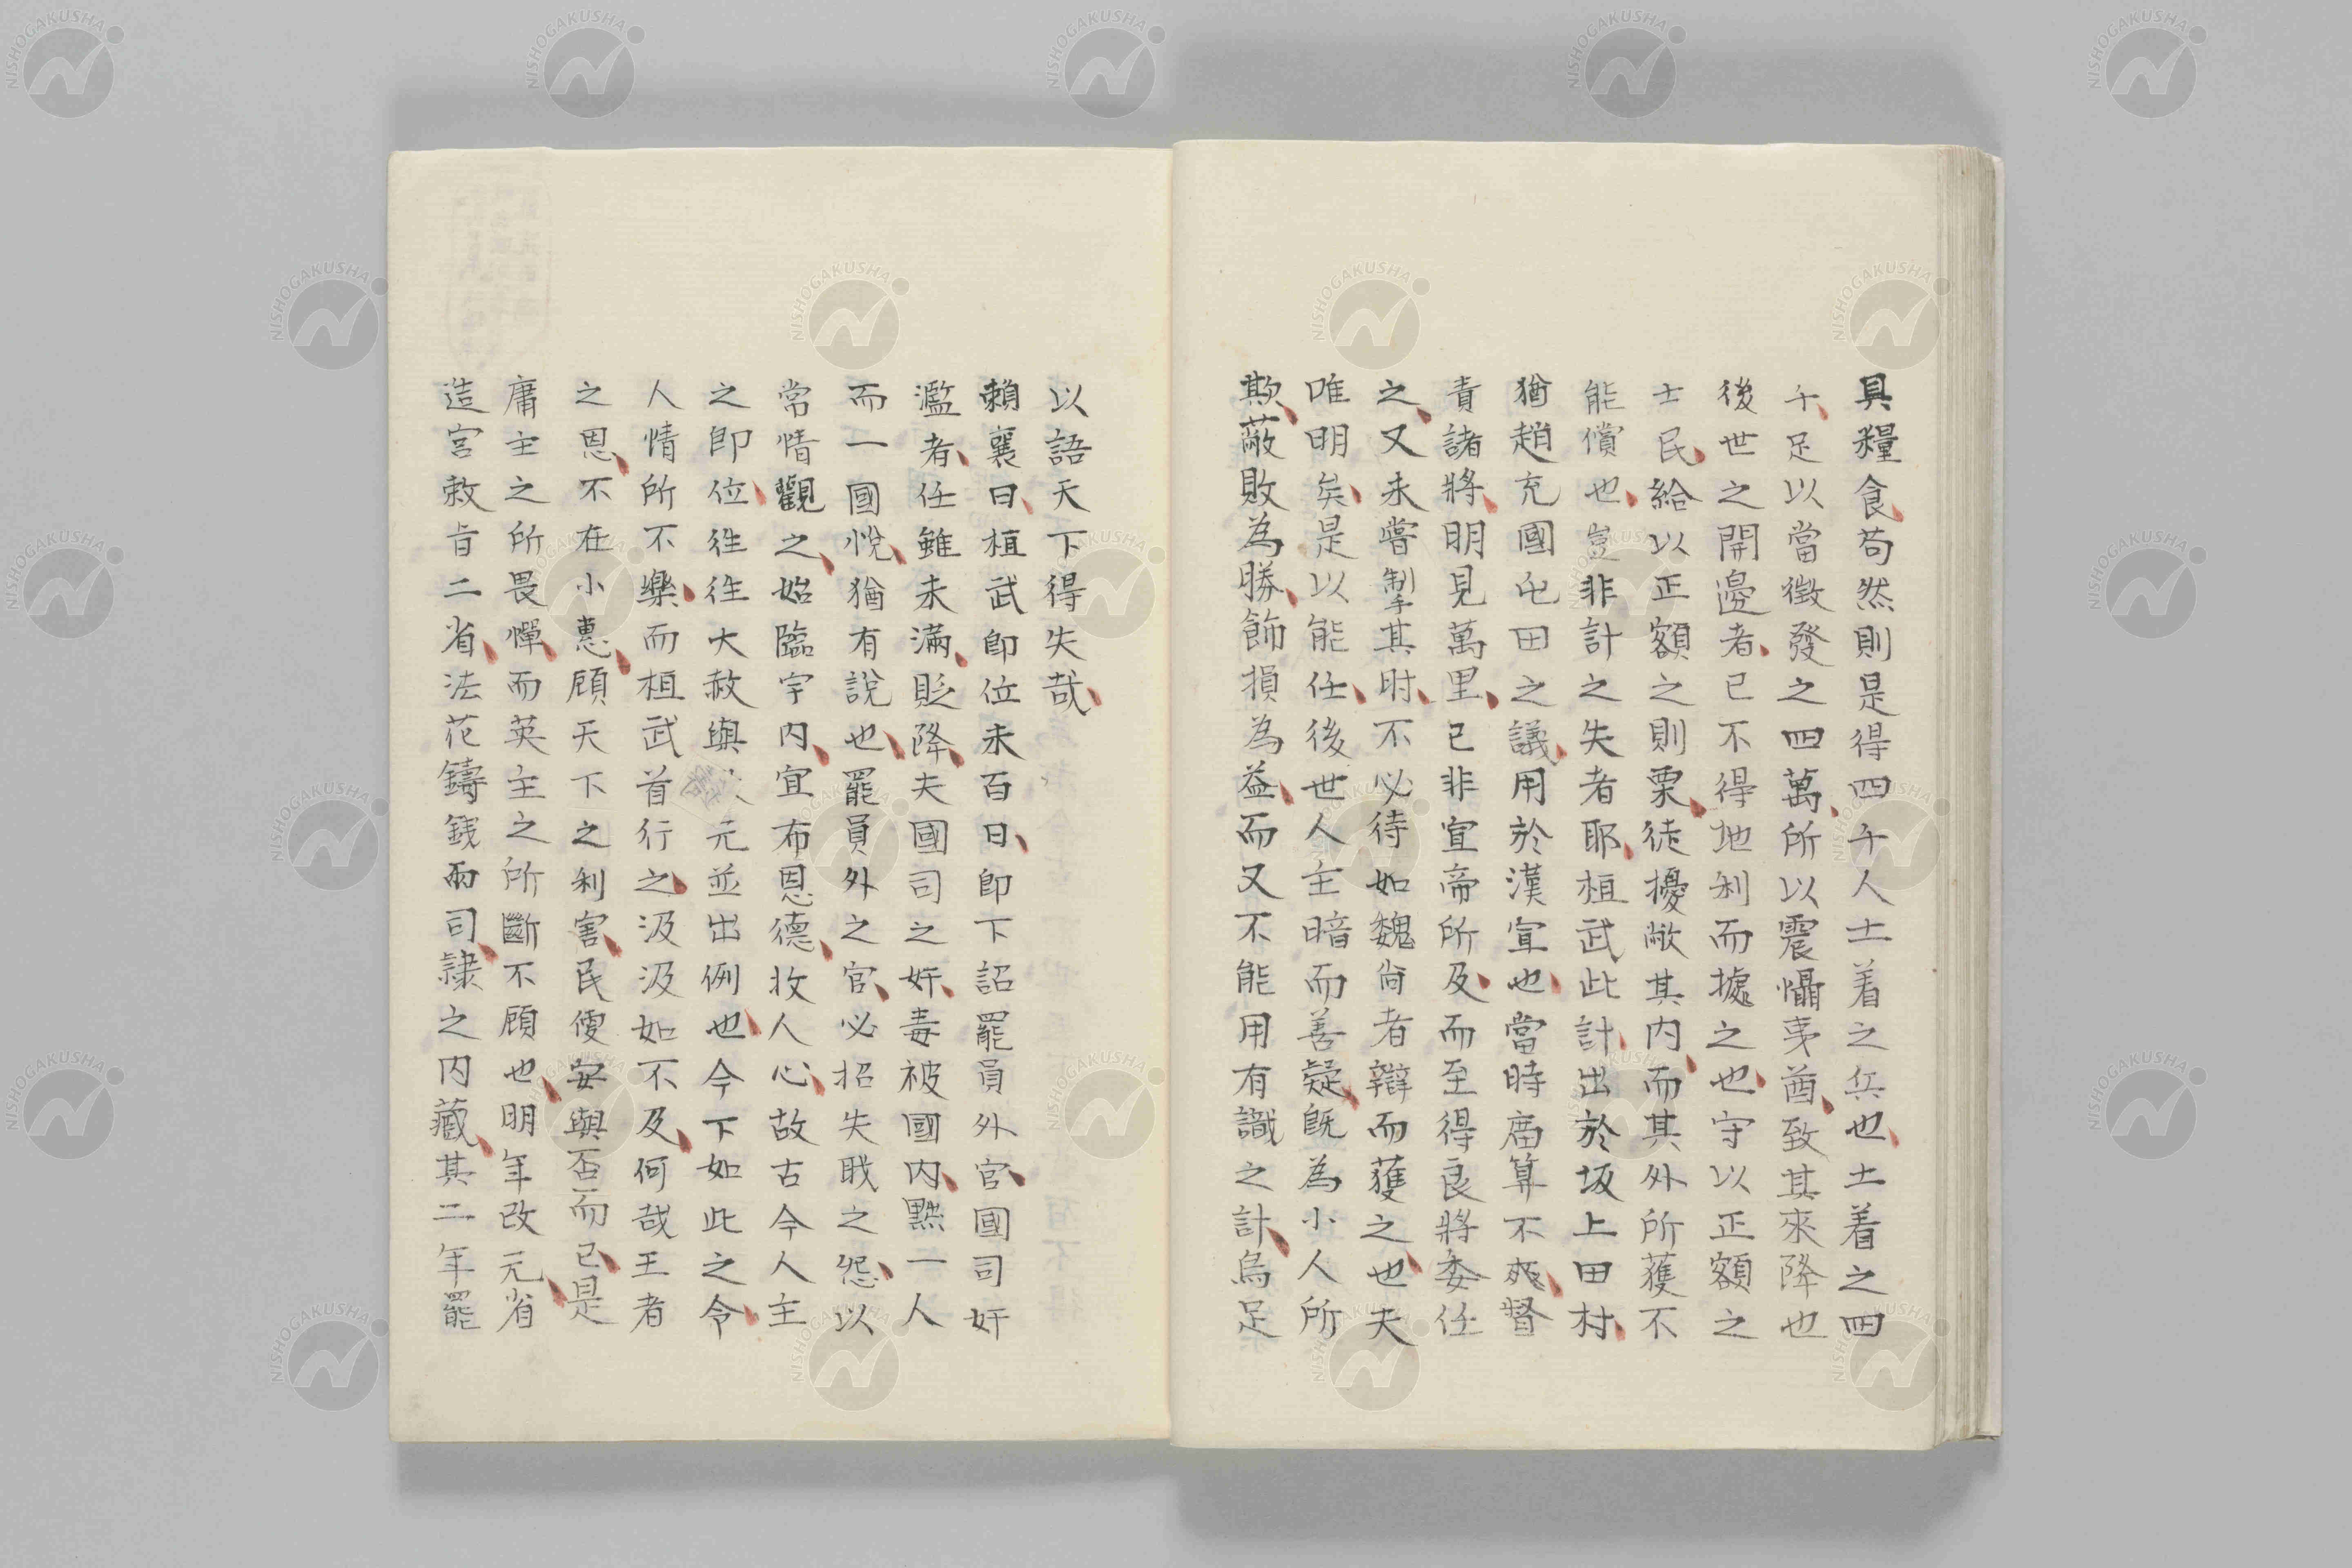 具糧食苟然則是得四千人土着之兵也土着之四
千足以當徴發之四萬所以震懾夷酋致其來降也
後世之開邊者已不得地利而據之也守以正額之
士民給以正額之則栗徒擾敝其内而其外所獲不
能償也豈非計之失者耶桓武此計出於坂上田村
猶趙充國屯田之議用於漢宣也當時庿算不爽督
責諸將明見萬里已非宣帝所及而至得良將委任
之又未嘗掣其肘不必待如魏尚者辯而獲之也夫
唯明矣是以能任後世人主暗而善疑既為小人所
欺蔽敗為勝飾損為益而又不能用有識之計烏足
以語天下得失哉
賴襄曰桓武即位未百日即下詔罷員外官國司奸
濫者任雖未滿貶降夫國司之奸毒被國内黜一人
而一國悅猶有説也罷員外之官必招失職之怨以
常情觀之始臨宇内宜布恩德收人心故古今人主
之即位徃徃大赦與元並出例也今下如此之令
人情所不樂而桓武首行之汲汲如不及何哉王者
之恩不在小惠顧天下之利害民便安與否而已是
庸主之所畏憚而英主之所斷不顧也明年改元省
造宮敕旨二省法花鑄錢兩司隷之内藏其二年罷
NISHOGAKUSHA